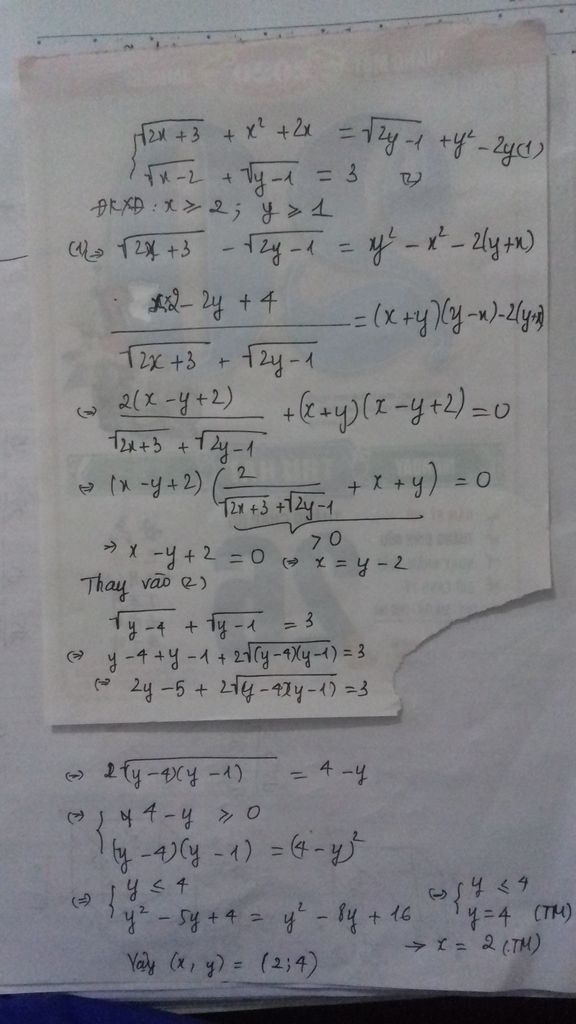 √(2x+3) + x² + 2x = √(2y-1) + y² - 2y (1)
√(x-2) + √(y-1) = 3 (2)
ĐKXĐ: x ≥ 2; y ≥ 1
(1) ⇔ √(2x+3) - √(2y-1) = y² - x² - 2(y+x)
2x - 2y + 4 / (√(2x+3) + √(2y-1)) = (x+y)(y-x) - 2(y+x)
⇔ 2(x-y+2) / (√(2x+3) + √(2y-1)) + (x+y)(x-y+2) = 0
⇔ (x-y+2)(2 / (√(2x+3) + √(2y-1)) + x + y) = 0
> 0
⇒ x - y + 2 = 0 ⇔ x = y - 2
Thay vào (2)
√(y-4) + √(y-1) = 3
⇔ y-4 + y-1 + 2√((y-4)(y-1)) = 3
⇔ 2y-5 + 2√((y-4)(y-1)) = 3
⇔ 2√((y-4)(y-1)) = 4-y
⇔ { 4-y ≥ 0
(y-4)(y-1) = (4-y)²
⇔ { y ≤ 4
y² - 5y + 4 = y² - 8y + 16
⇔ { y ≤ 4
y = 4 (TM)
→ x = 2 (TM)
Vậy (x, y) = (2; 4)